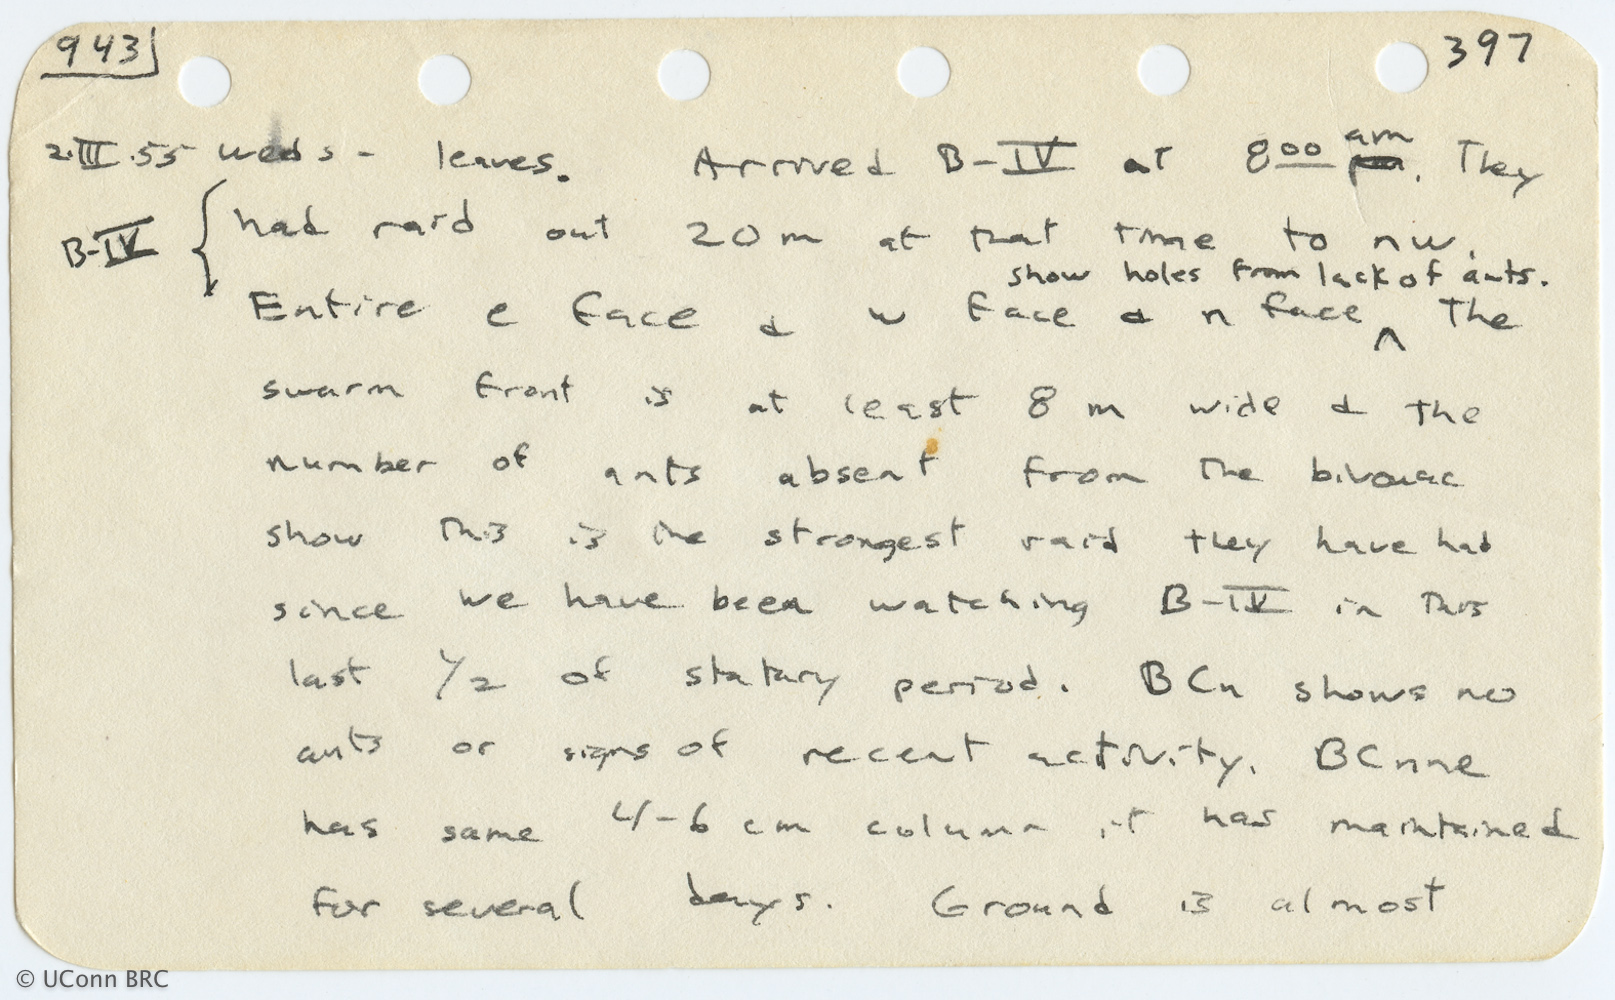 943 397
2.III.55 weds - leaves. Arrived B-IV at 8 00 am. They
B-IV { had raid out 20 m at that time to nw.
show holes from lack of ants.
Entire e face & w face & n face ^ The
swarm front is at least 8 m wide & the
number of ants absent from the bivouac
show this is the strongest raid they have had
since we have been watching B-IV in this
last 1/2 of statary period. BCn shows no
ants or signs of recent activity. BCnne
has same 4-6 cm column it has maintained
for several days. Ground is almost
© UConn BRC